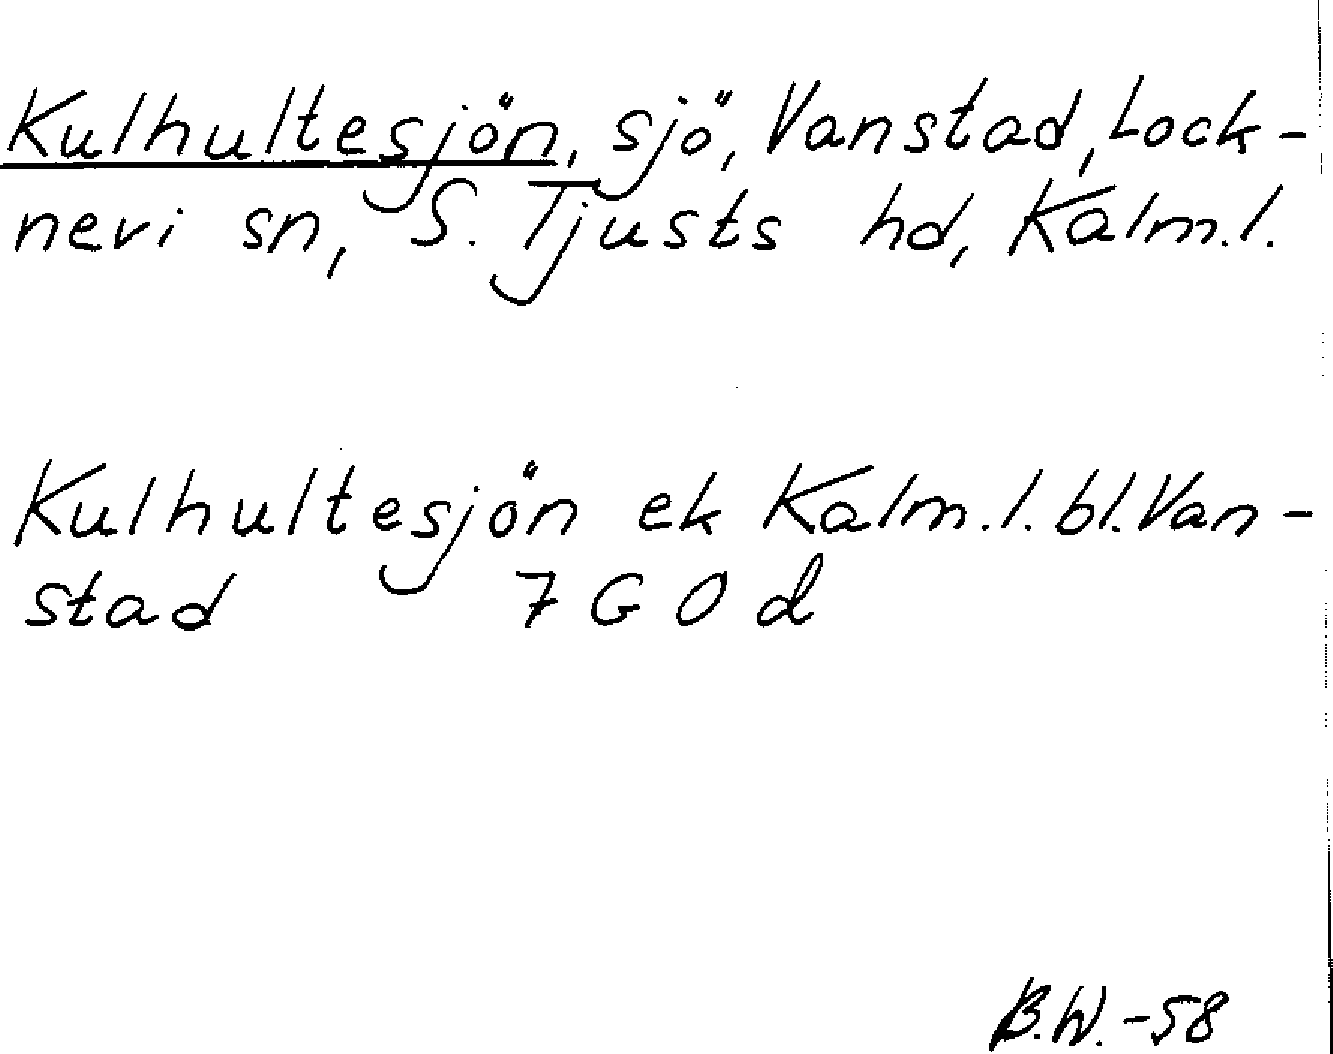 Kulhultesjön, sjö, Vanstad, Lock-
nevi sn, S. Tjusts hd, Kalm.l.
Kulhultesjön ek Kalm.l. bl. Van-
stad 7 G O d
B.W.-58